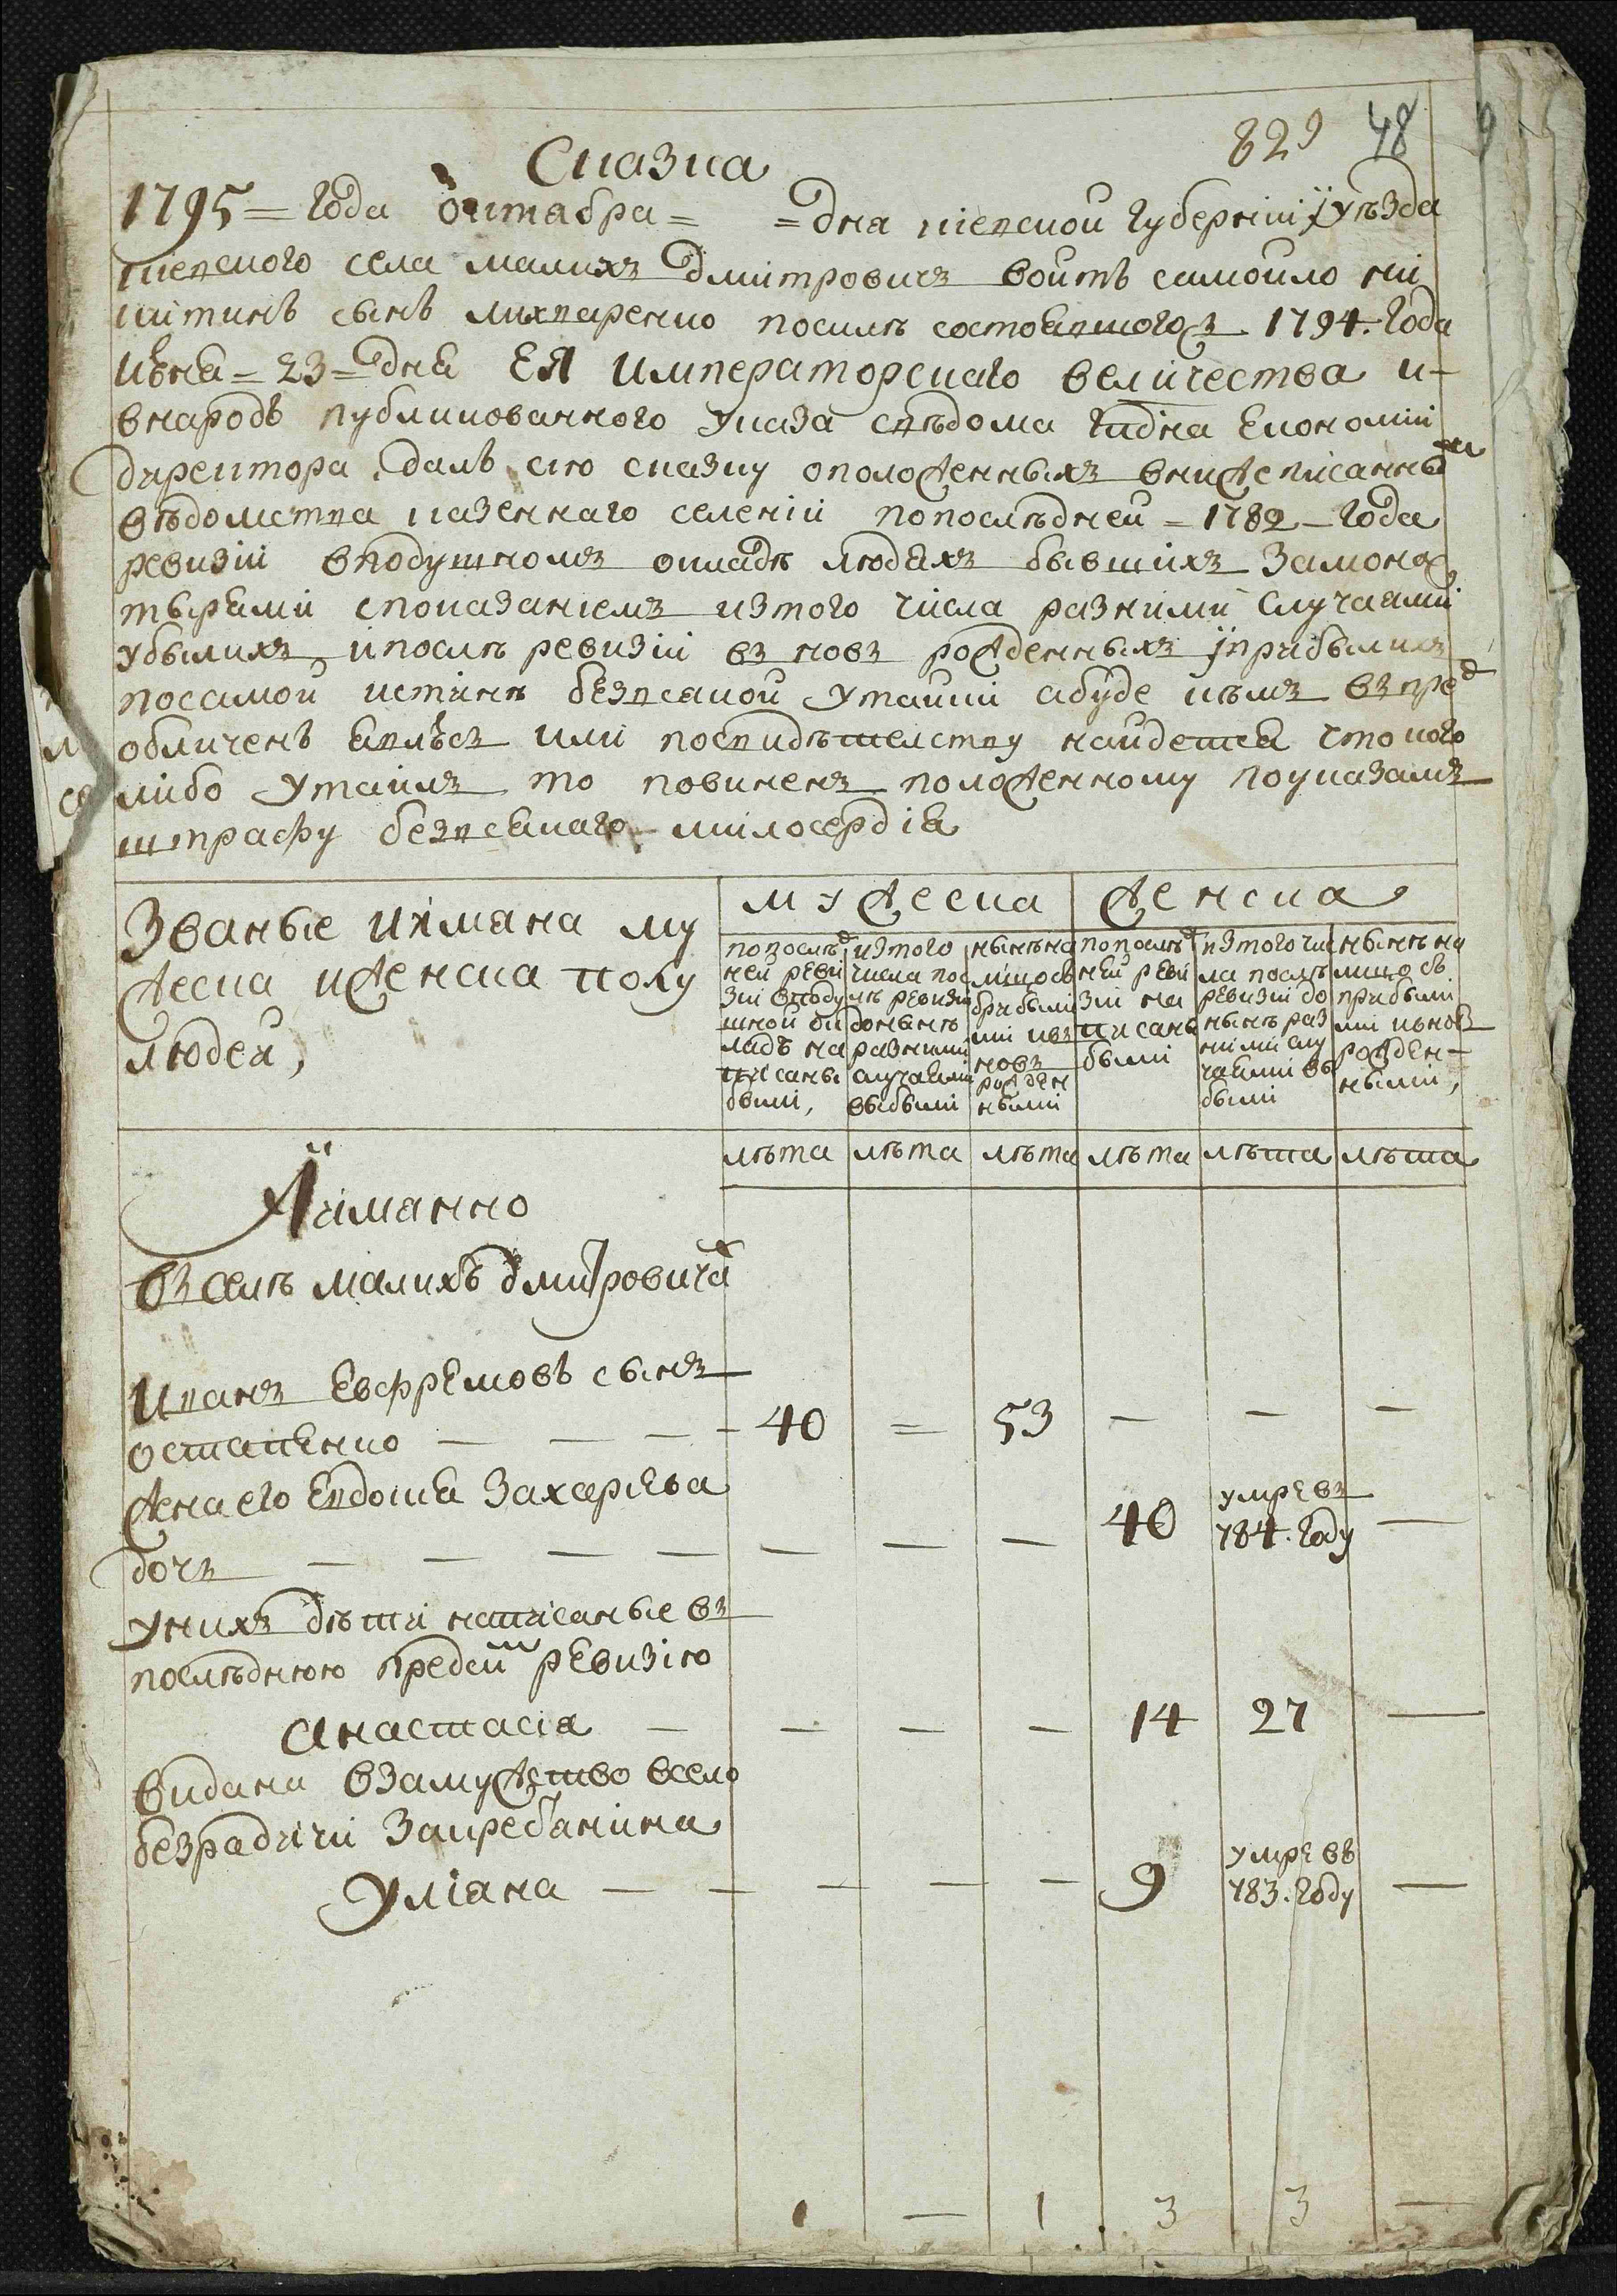 829 48
Сказка
1795 = года октября = = дня киевской губернии и уѣзда
киевского села малихъ дмитровичъ войтъ самойло ни
китинъ сынъ лихваренко посилѣ состоявшогося 1794. года
июня = 23 = дня ЕЯ императорскаго величества и
внародъ публикованного указа свѣдома гдна економии
директора далъ сию сказку оположенныхъ внижеписанны
вѣдомства казеннаго селении попослѣдней = 1782 - года
ревизии вподушномъ окладѣ людяхъ бывшихъ замона
тырями споказаниемъ изтого числа разними случаями
убылихъ, и послѣ ревизии въ новъ рожденныхъ и прибылихъ
посамой истинѣ безвсякой утайки абуде кѣмъ впред
обличенъ явлюсъ или посвидѣтелству найдется что кого
либо утаилъ то повиненъ положенному поуказамъ
штрафу безвсякаго милосердія
Званые и имяна му
жеска и женска полу
людей,
мужеска
женска
попослѣд
ней реви
зіи вподу
шной ок
ладъ на
писаны
были,
изтого
числа пос
лѣ ревизіи
донынѣ
разними
случаями
выбыли
нынѣ на
лицо съ
прибыли
ми и въ
новъ
рожден
ными
попослѣд
ней реви
зіи на
писаны
были
изтого чис
ла послѣ
ревизіи до
нынѣ раз
ними слу
чаями вы
были
нынѣ на
лицо съ
прибыли
ми и новъ
рожден-
ными,
лѣта лѣта лѣта лѣта лѣта лѣта
А имянно
въ селѣ малихъ дмитровича
Иванъ Евфремовъ сынъ
остапенко — — — - 40 = 53 — — —
жена его Евдокия Захариева
дочъ — — — — — — — 40 умре въ 784. году —
унихъ дѣти написаные въ
послѣднюю пред сим ревизію
Анастасія — — — — 14 27 —
видана взамужство всело
безрадичи Закребанина
Уліана — — — — — 9 умре въ 783. году —
1 — 1 3 3 —